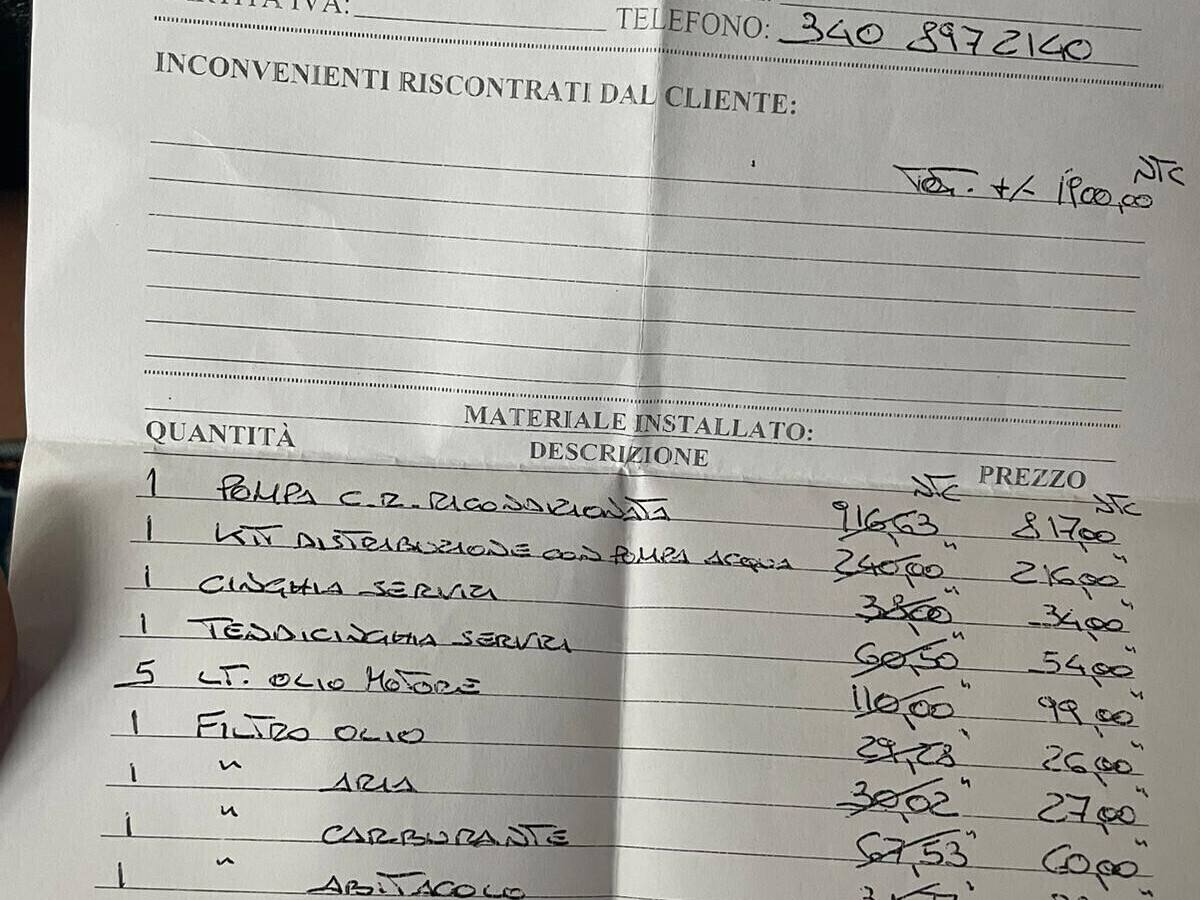 IVA: TELEFONO: 340 8972140
INCONVENIENTI RISCONTRATI DAL CLIENTE:
NTC
TOT. +/- 1900,00
MATERIALE INSTALLATO:
QUANTITÀ DESCRIZIONE PREZZO
NTC NTC
1 POMPA C.R. RICONDIZIONATA 916,63 817,00
1 KIT DISTRIBUZIONE CON POMPA ACQUA 240,00 " 216,00 "
1 CINGHIA SERVIZI 38,00 " 34,00 "
1 TENDICINGHIA SERVIZI 60,50 " 54,00 "
5 LT. OLIO MOTORE 110,00 " 99,00 "
1 FILTRO OLIO 29,28 " 26,00 "
1 " ARIA 30,02 " 27,00 "
1 " CARBURANTE 67,53 " 60,00 "
1 " ABITACOLO